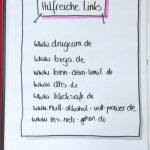 Hilfreiche Links
www.drugcom.de
www.bzga.de
www.kenn-dein-limit.de
www.dhs.de
www.klicksafe.de
www.null-alkohol-voll-power.de
www.ins-netz-gehen.de